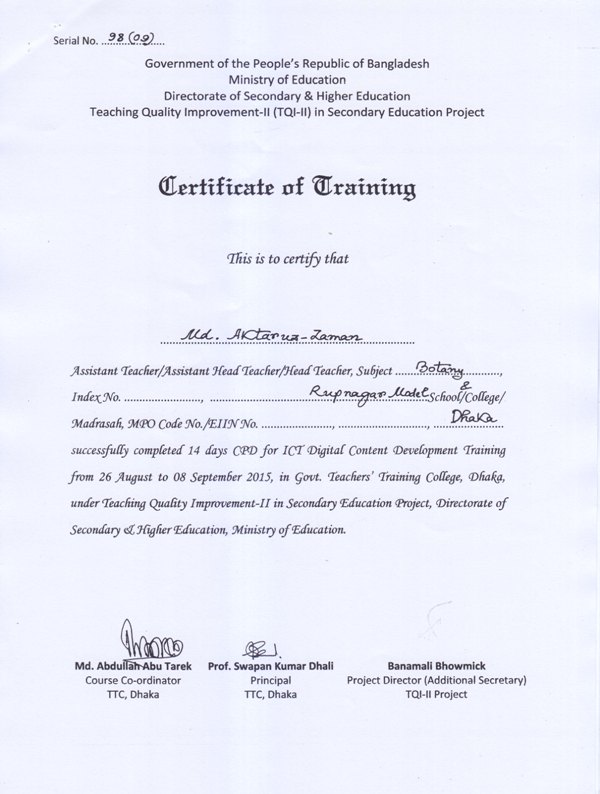 Serial No. 98(09)
Government of the People's Republic of Bangladesh
Ministry of Education
Directorate of Secondary & Higher Education
Teaching Quality Improvement-II (TQI-II) in Secondary Education Project
Certificate of Training
This is to certify that
Md. Aktaruz-Zaman
Assistant Teacher/Assistant Head Teacher/Head Teacher, Subject Botany,
Index No. ........................, Rupnagar Model School & /College/
Madrasah, MPO Code No./EIIN No. ......................, ......................, Dhaka
successfully completed 14 days CPD for ICT Digital Content Development Training
from 26 August to 08 September 2015, in Govt. Teachers' Training College, Dhaka,
under Teaching Quality Improvement-II in Secondary Education Project, Directorate of
Secondary & Higher Education, Ministry of Education.
Md. Abdullah Abu Tarek Prof. Swapan Kumar Dhali Banamali Bhowmick
Course Co-ordinator Principal Project Director (Additional Secretary)
TTC, Dhaka TTC, Dhaka TQI-II Project